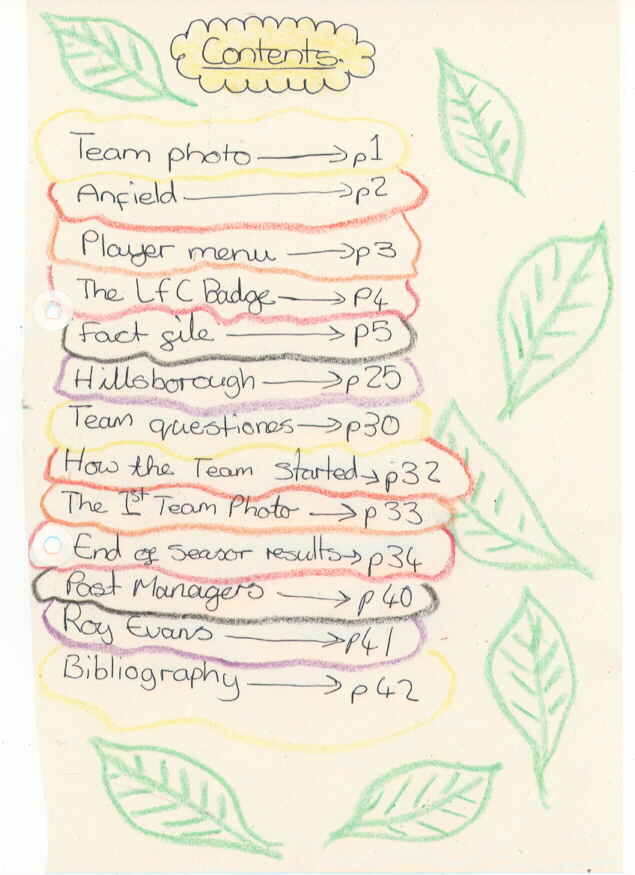 Contents.
Team photo → p1
Anfield → p2
Player menu → p3
The LFC Badge → P4
Fact file → p5
Hillsborough → p25
Team questiones → p30
How the Team started → p32
The 1st Team Photo → p33
End of season results → p34
Past Managers → p40
Roy Evans → p41
Bibliography → p42